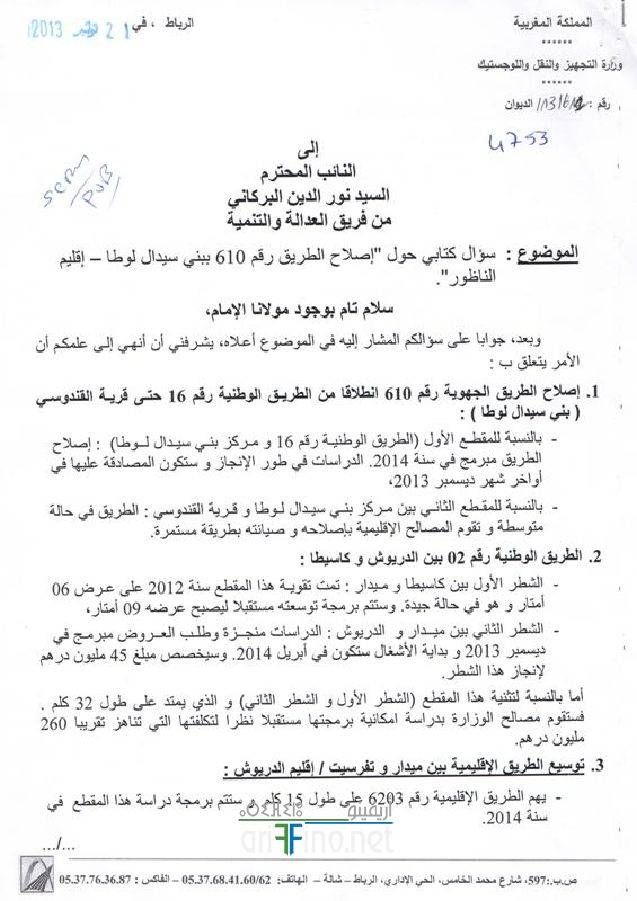 المملكة المغربية
******
وزارة التجهيز والنقل واللوجستيك
******
رقم : الديوان
الرباط ، في 21 نونبر 2013
4753
إلى
النائب المحترم
السيد نور الدين البركاني
من فريق العدالة والتنمية
الموضوع : سؤال كتابي حول "إصلاح الطريق رقم 610 ببني سيدال لوطا – إقليم
الناظور".
سلام تام بوجود مولانا الإمام،
وبعد، جوابا على سؤالكم المشار إليه في الموضوع أعلاه، يشرفني أن أنهي إلى علمكم أن
الأمر يتعلق ب :
1. إصلاح الطريق الجهوية رقم 610 انطلاقا من الطريق الوطنية رقم 16 حتى قرية القندوسي
( بني سيدال لوطا ) :
- بالنسبة للمقطع الأول (الطريق الوطنية رقم 16 و مركز بني سيدال لوطا) : إصلاح
الطريق مبرمج في سنة 2014. الدراسات في طور الإنجاز و ستكون المصادقة عليها في
أواخر شهر ديسمبر 2013،
- بالنسبة للمقطع الثاني بين مركز بني سيدال لوطا و قرية القندوسي : الطريق في حالة
متوسطة و تقوم المصالح الإقليمية بإصلاحه و صيانته بطريقة مستمرة.
2. الطريق الوطنية رقم 02 بين الدريوش و كاسيطا :
- الشطر الأول بين كاسيطا و ميدار : تمت تقوية هذا المقطع سنة 2012 على عرض 06
أمتار و هو في حالة جيدة. وستتم برمجة توسعته مستقبلا ليصبح عرضه 09 أمتار،
- الشطر الثاني بين ميدار و الدريوش : الدراسات منجزة وطلب العروض مبرمج في
ديسمبر 2013 و بداية الأشغال ستكون في أبريل 2014. وسيخصص مبلغ 45 مليون درهم
لإنجاز هذا الشطر.
أما بالنسبة لتثنية هذا المقطع (الشطر الأول و الشطر الثاني) و الذي يمتد على طول 32 كلم ،
فستقوم مصالح الوزارة بدراسة امكانية برمجتها مستقبلا نظرا لتكلفتها التي تناهز تقريبا 260
مليون درهم.
3. توسيع الطريق الإقليمية بين ميدار و تفرسيت / إقليم الدريوش :
- يهم الطريق الإقليمية رقم 6203 على طول 15 كلم و ستتم برمجة دراسة هذا المقطع في
سنة 2014.
أريفينو
arifino.net
.../...
ص.ب.:597، شارع محمد الخامس، الحي الإداري، الرباط – شالة – الهاتف: 05.37.68.41.60/62 – الفاكس : 05.37.76.36.87